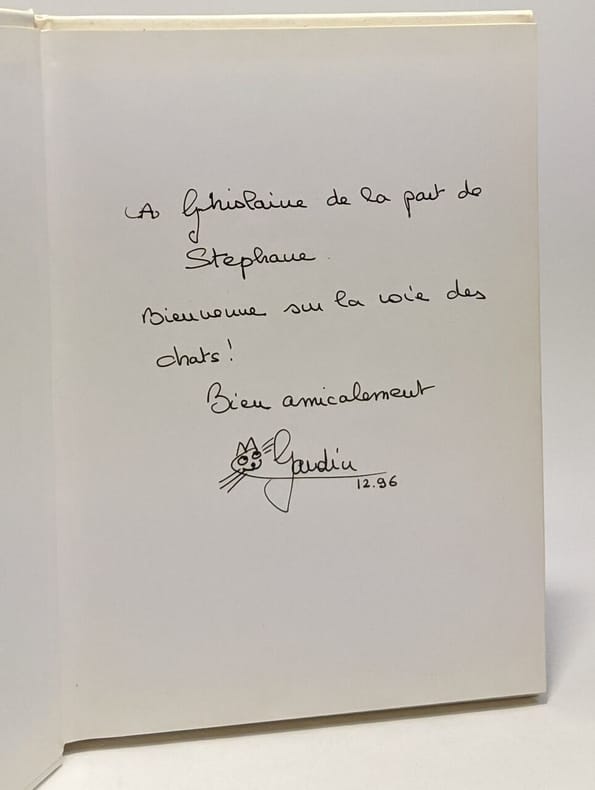 A Ghislaine de la part de
Stephane
Bienvenue sur la voie des
chats!
Bien amicalement
Gaudin
12.96